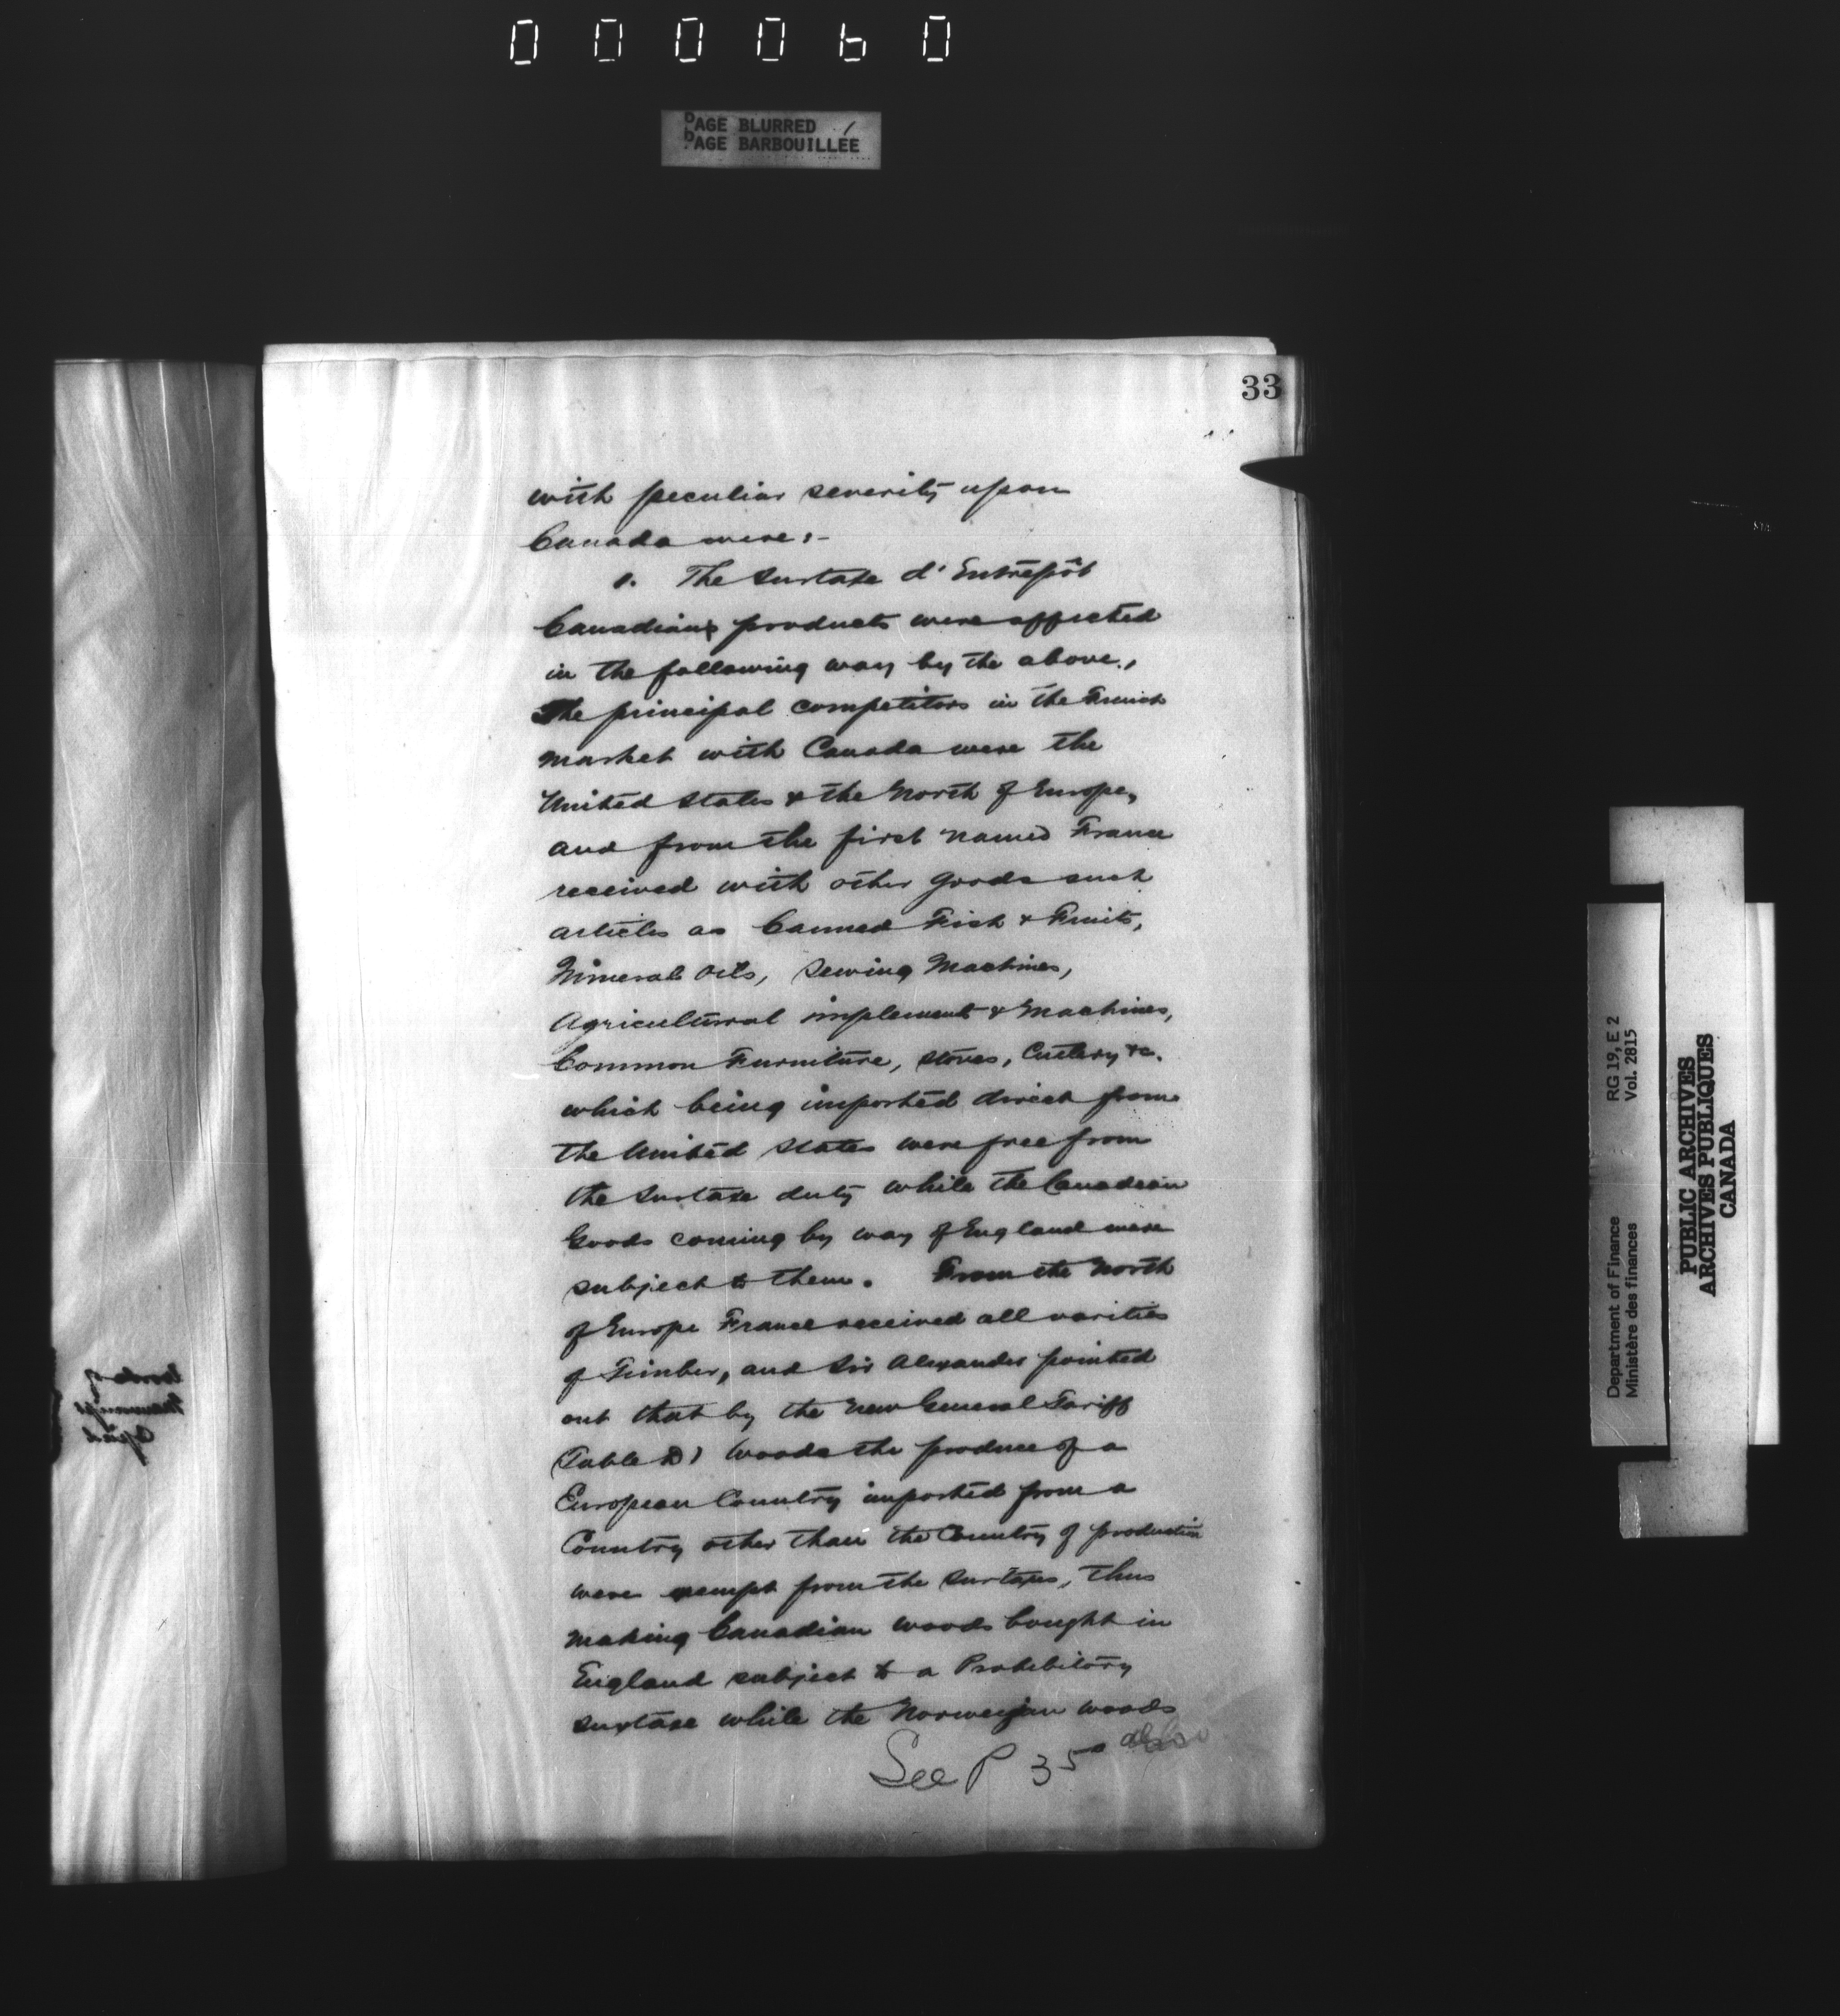 000060
PAGE BLURRED
PAGE BARBOUILLÉE
33
with peculiar severity upon
Canada were:-
1. The Surtaxe d'Entrepôt
Canadian products were affected
in the following way by the above.,
The principal competitors in the French
market with Canada were the
United States & the North of Europe,
and from the first named France
received with other goods such
articles as Canned Fish & Fruits,
Mineral Oils, Sewing Machines,
Agricultural implements & Machines,
Common Furniture, Stoves, Cutlery &c.
which being imported direct from
the United States were free from
the Surtaxe duty while the Canadian
Goods coming by way of England were
subject to them. From the North
of Europe France received all varities
of Timber, and Sir Alexander pointed
out that by the new General Tariff
(Table D) Woods the produce of a
European Country imported from a
Country other than the Country of production
were exempt from the Surtaxes, thus
making Canadian woods bought in
England subject to a Prohibitory
surtaxe while the Norwegian woods
See P 35 also
RG 19, E 2
Vol. 2815
Department of Finance
Ministère des finances
PUBLIC ARCHIVES
ARCHIVES PUBLIQUES
CANADA